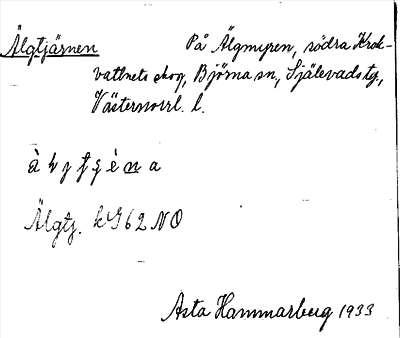 Älgtjärnen På Älgmyren, södra Krok-
vattnets skog, Björna sn, Själevads tg,
Västernorrl. l.
Älgtj. k 962 NO
Asta Hammarberg 1933